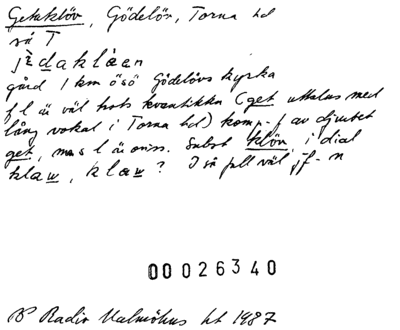 Getaklöv, Gödelöv, Torna hd
så T
jèdaklåen
gård 1 km ösö Gödelövs kyrka
f l är väl trots kvantiteten (get uttalas med
lång vokal i Torna hd) komp.-f av djurbet
get, men s l är oviss. Subst klöv, i dial
klaw, klaw? I så fall väl jf-n
00026340
BP Radir Malmöhus lt 1987